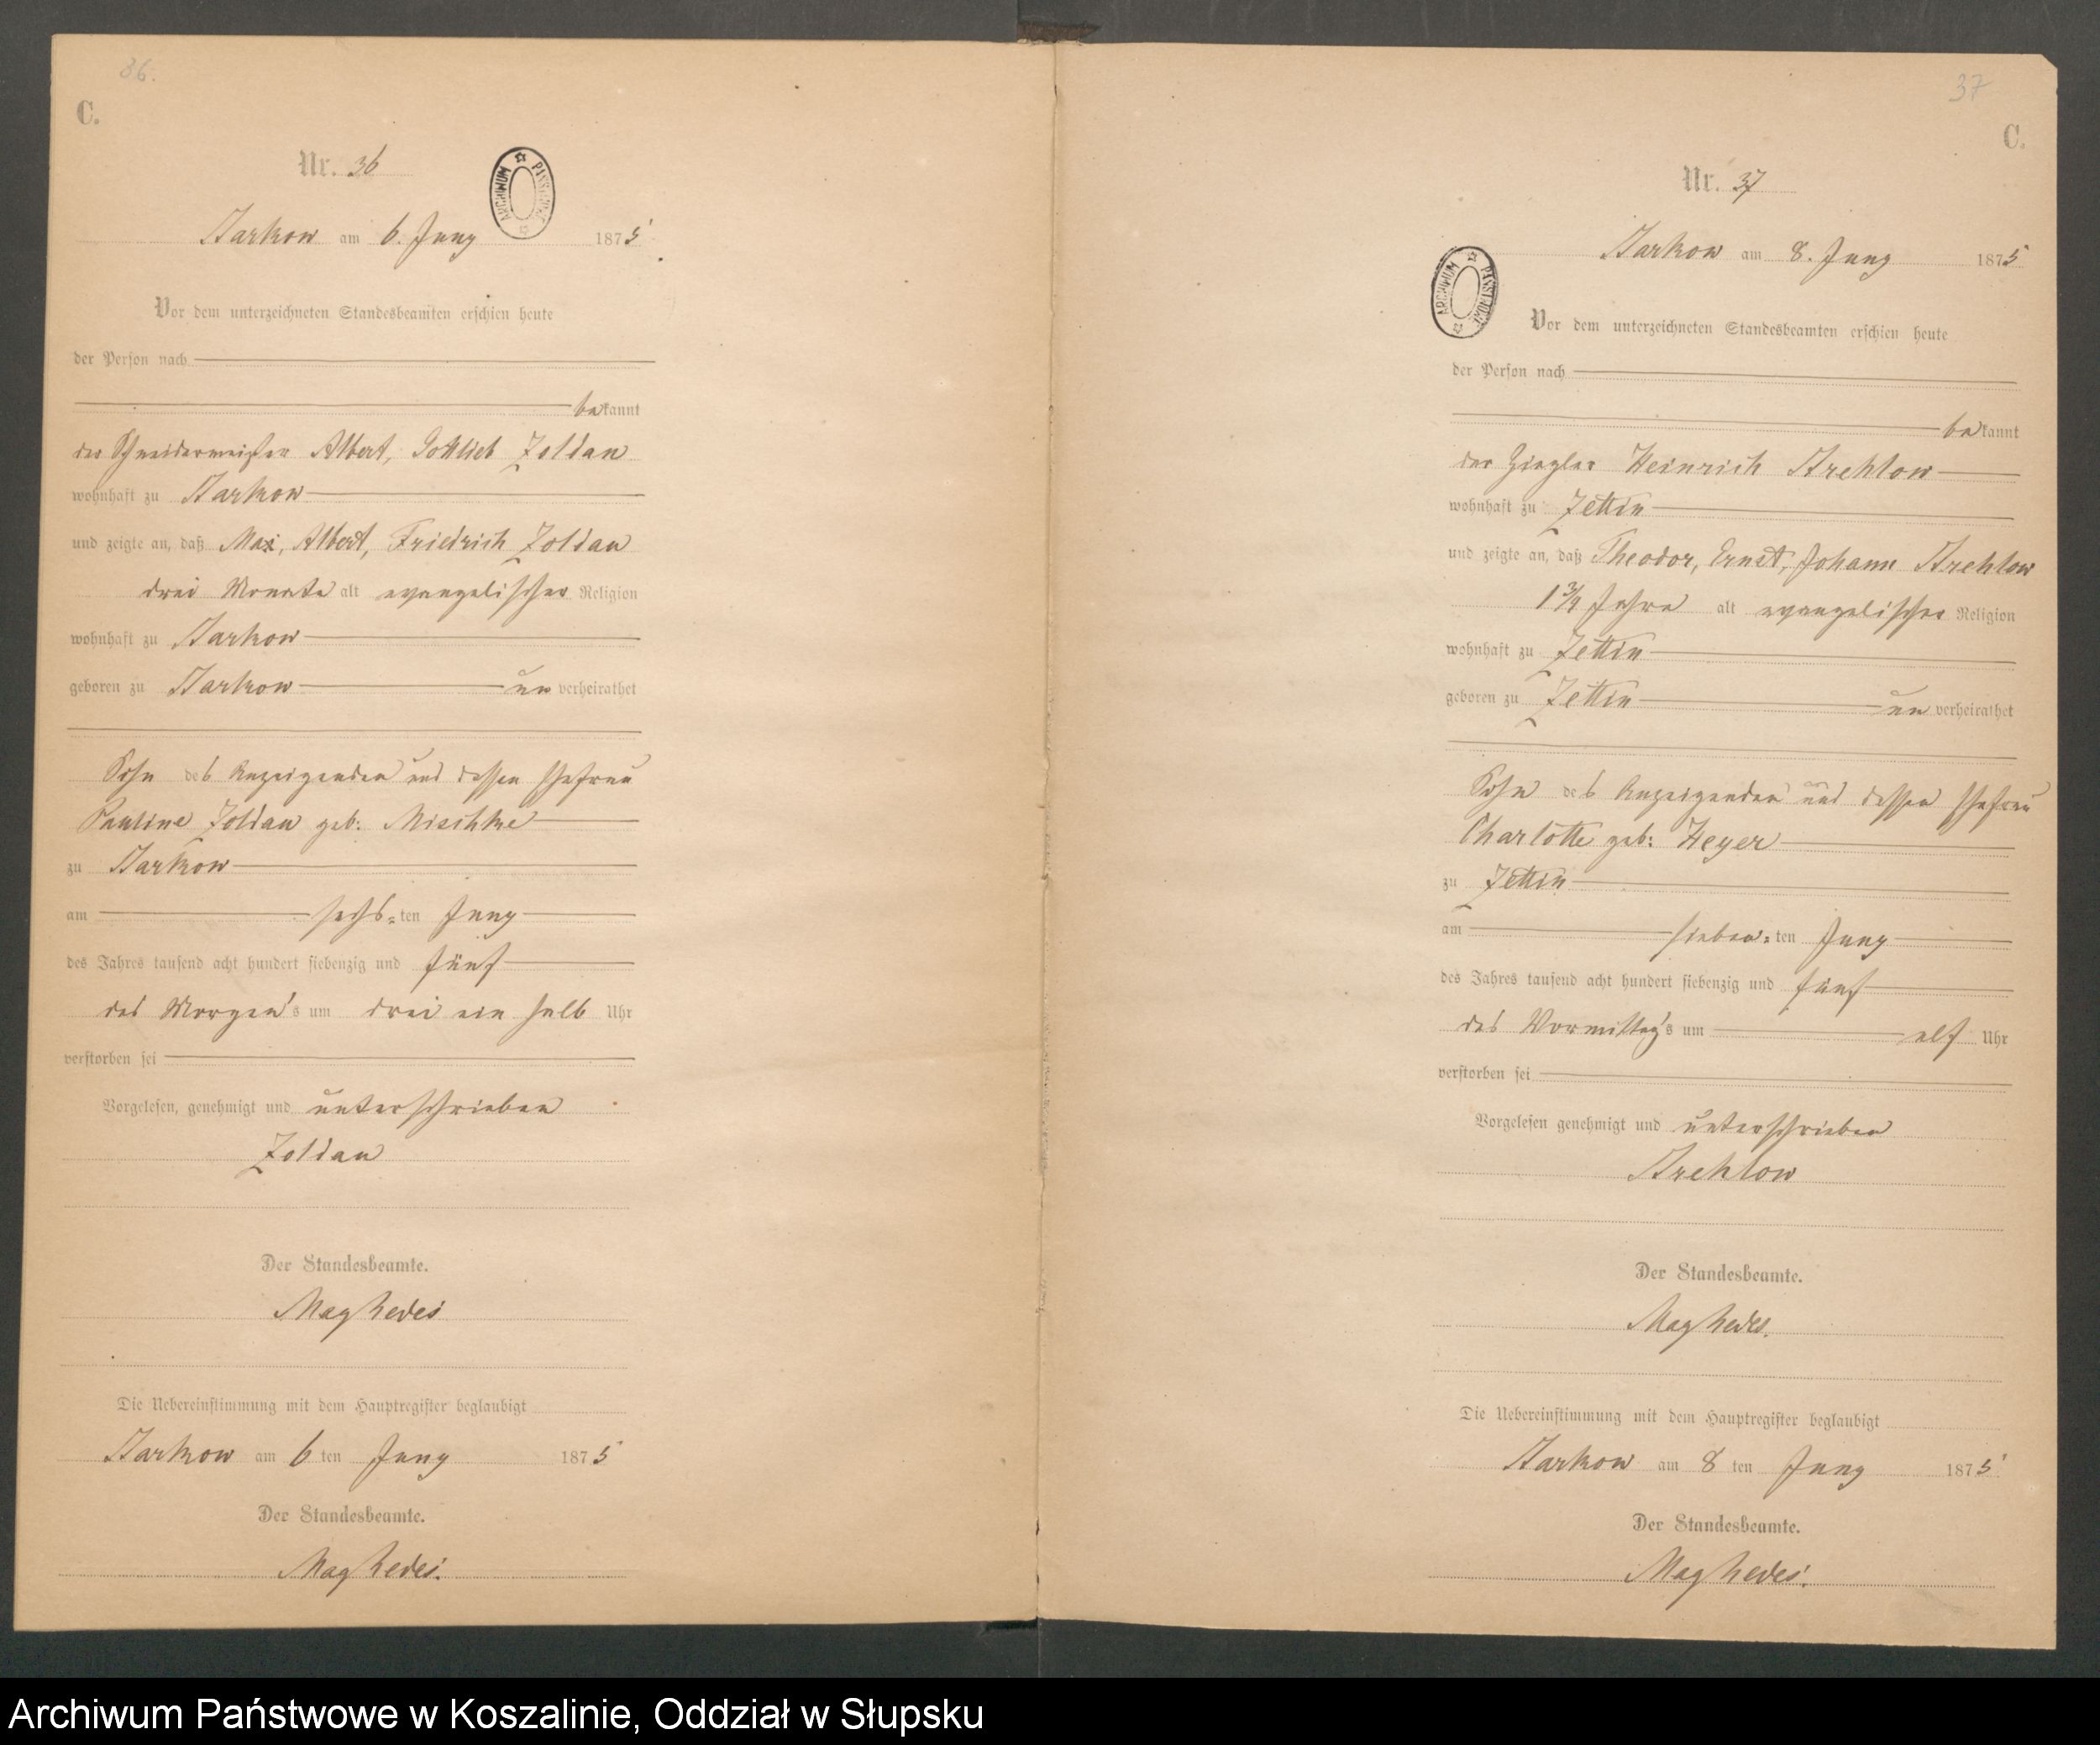 36.
C.
Nr. 36
ARCHIWUM PAŃSTWOWE
Starkow am 6. Juny 1875
Vor dem unterzeichneten Standesbeamten erschien heute
der Person nach
bekannt
der Schneidermeister Albert, Gottlieb Zoldan
wohnhaft zu Starkow
und zeigte an, daß Max, Albert, Friedrich Zoldan
drei Monate alt evangelischer Religion
wohnhaft zu Starkow
geboren zu Starkow unverheirathet
Sohn des Anzeigenden und dessen Ehefrau
Pauline Zoldan geb: Mischke
zu Starkow
am sechs=ten Juny
des Jahres tausend acht hundert siebenzig und fünf
des Morgen's um drei ein halb Uhr
verstorben sei
Vorgelesen, genehmigt und unterschrieben
Zoldan
Der Standesbeamte.
Die Uebereinstimmung mit dem Hauptregister beglaubigt
Starkow am 6 ten Juny 1875
Der Standesbeamte.
37
C.
Nr. 37
Starkow am 8. Juny 1875
ARCHIWUM PAŃSTWOWE
Vor dem unterzeichneten Standesbeamten erschien heute
der Person nach
bekannt
der Ziegler Heinrich Strehlow
wohnhaft zu Zettin
und zeigte an, daß Theodor, Ernst, Johann Strehlow
1 3/4 Jahre alt evangelischer Religion
wohnhaft zu Zettin
geboren zu Zettin unverheirathet
Sohn des Anzeigenden und dessen Ehefrau
Charlotte geb: Heyer
zu Zettin
am sieben=ten Juny
des Jahres tausend acht hundert siebenzig und fünf
des Vormittag's um elf Uhr
verstorben sei
Vorgelesen genehmigt und unterschrieben
Strehlow
Der Standesbeamte.
Die Uebereinstimmung mit dem Hauptregister beglaubigt
Starkow am 8 ten Juny 1875
Der Standesbeamte.
Archiwum Państwowe w Koszalinie, Oddział w Słupsku